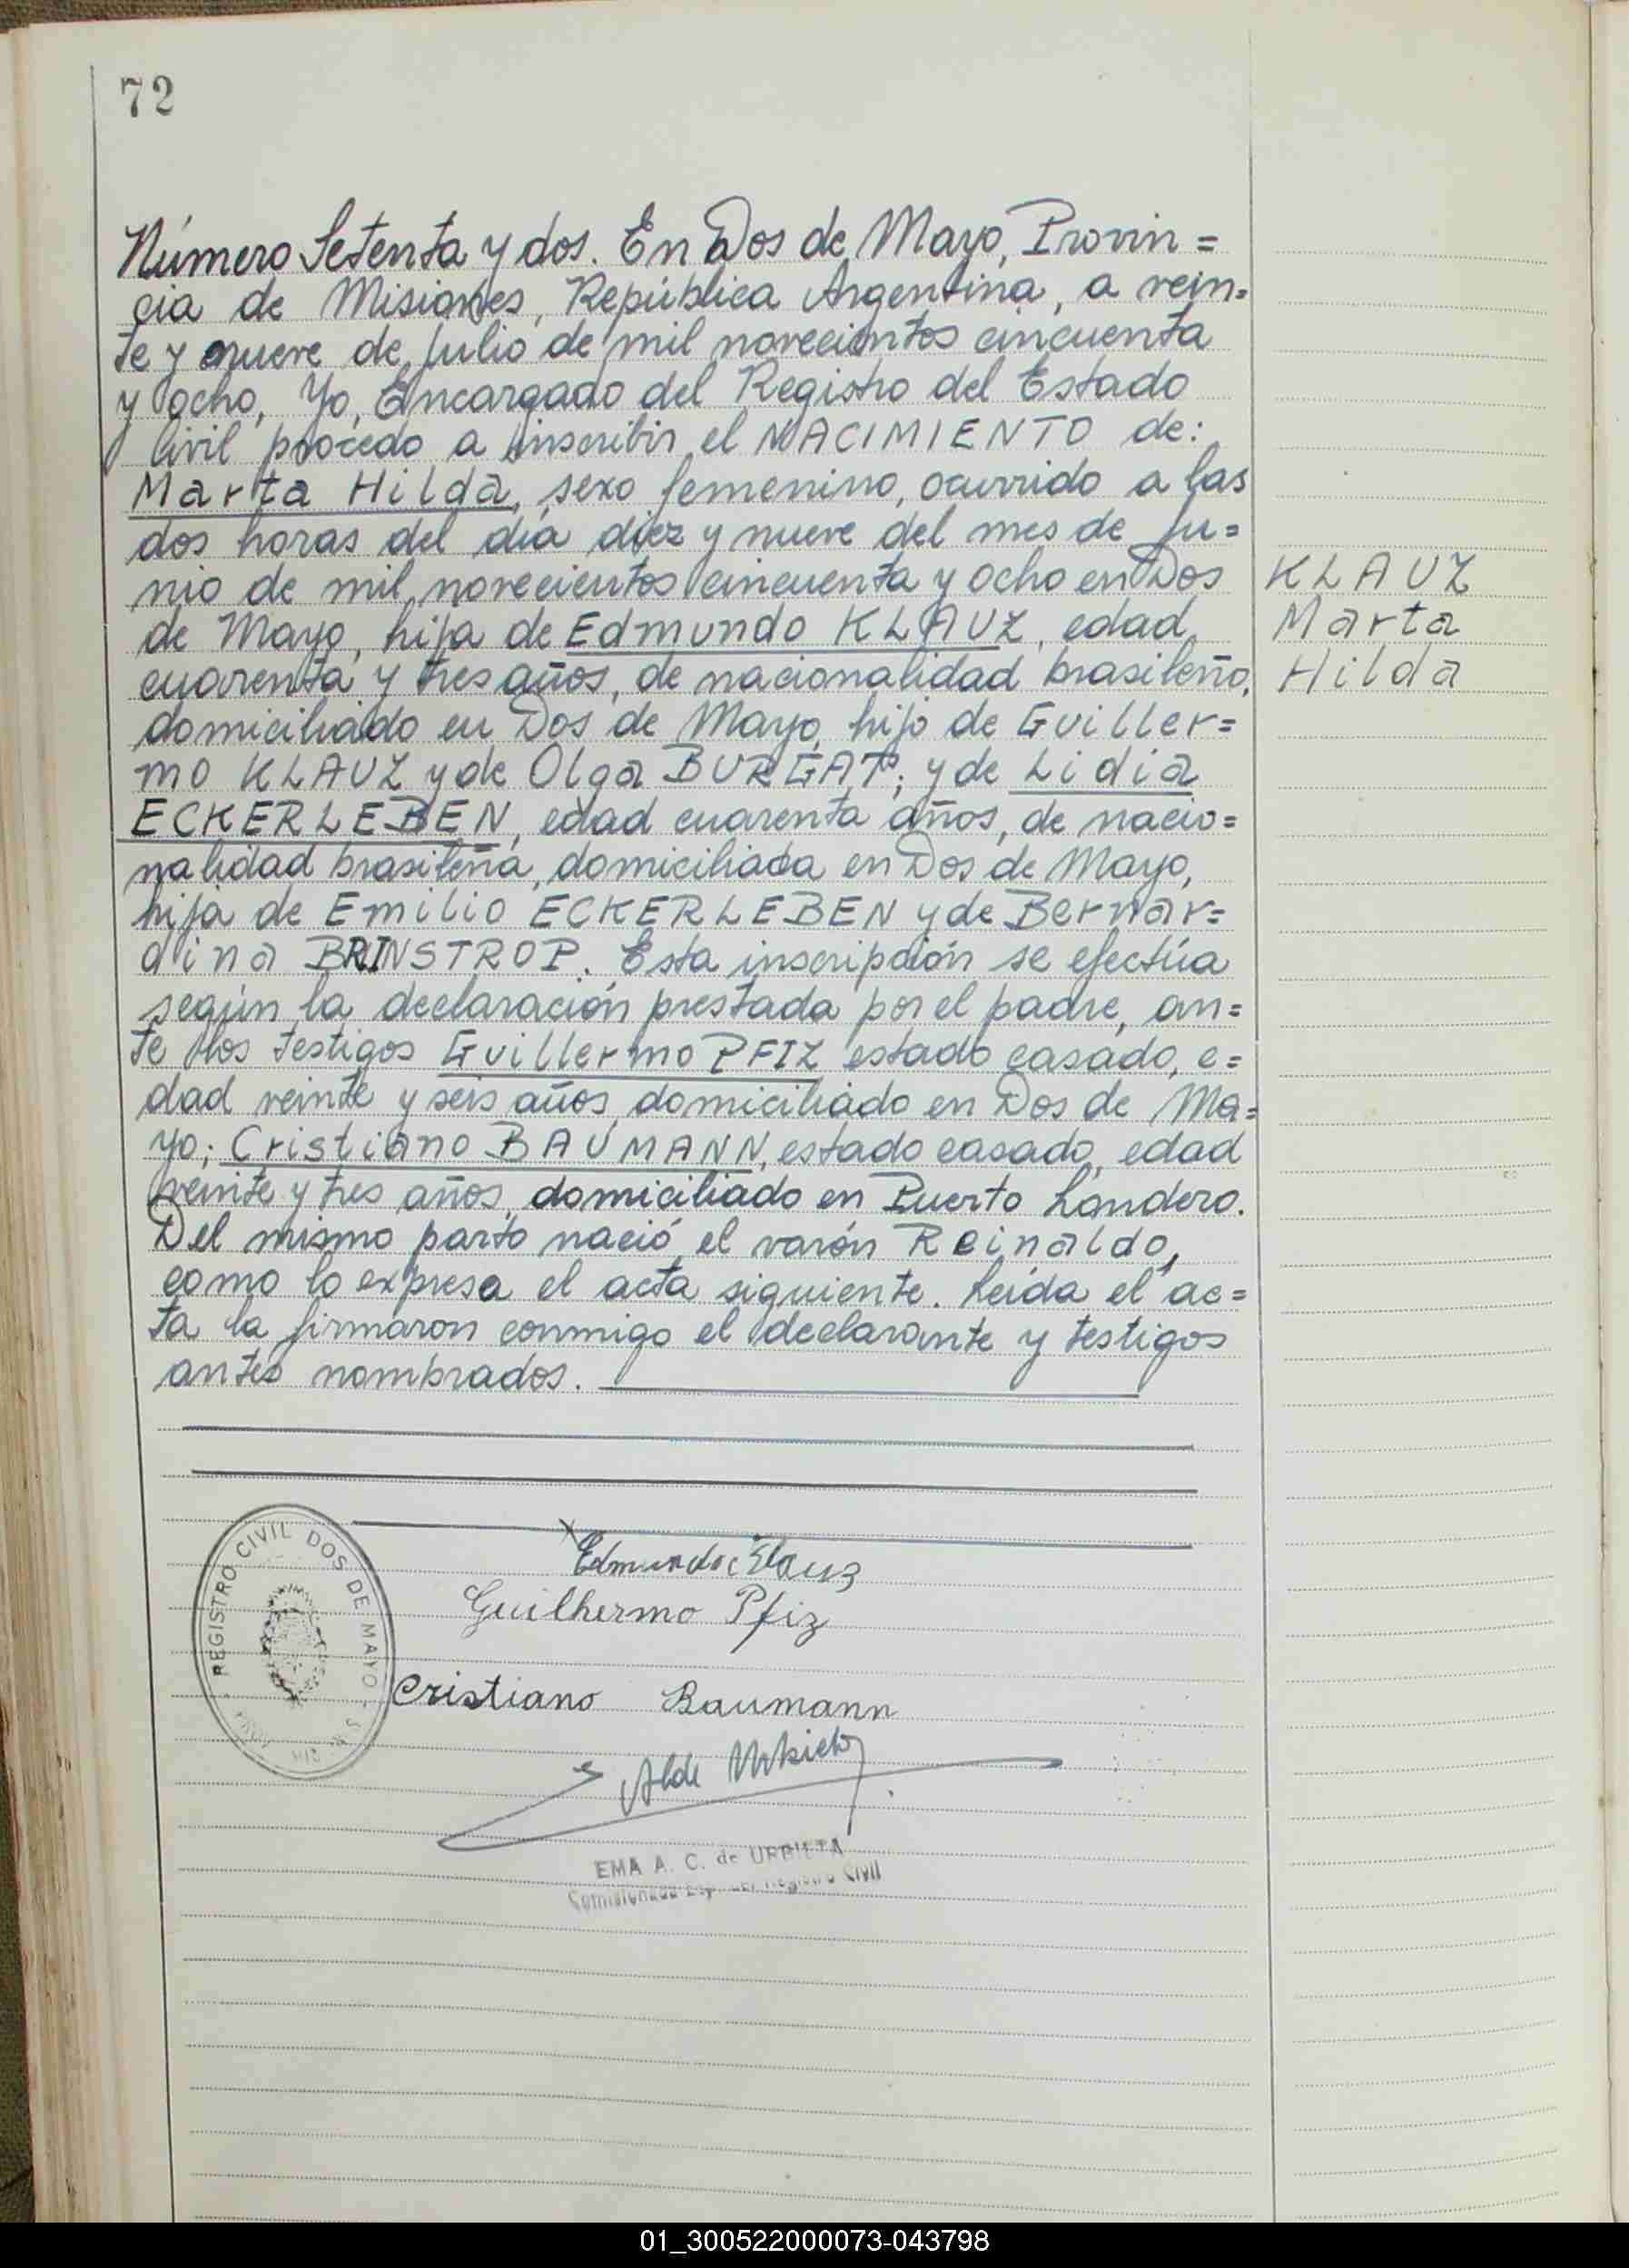 72
Número Setenta y dos. En Dos de Mayo, Provin=
cia de Misiones, República Argentina, a vein=
te y nueve de Julio de mil novecientos cincuenta
y ocho, Yo, Encargado del Registro del Estado
Civil procedo a inscribir el NACIMIENTO de:
Marta Hilda, sexo femenino, ocurrido a las
dos horas del día diez y nueve del mes de Ju=
nio de mil novecientos cincuenta y ocho en Dos
de Mayo, hija de Edmundo KLAUZ, edad
cuarenta y tres años, de nacionalidad brasileño,
domiciliado en Dos de Mayo, hijo de Guiller=
mo KLAUZ y de Olga BURGAT; y de Lidia
ECKERLEBEN, edad cuarenta años, de nacio=
nalidad brasileña, domiciliada en Dos de Mayo,
hija de Emilio ECKERLEBEN y de Bernar=
dina BRINSTROP. Esta inscripción se efectúa
según la declaración prestada por el padre, an=
te los testigos Guillermo PFIZ estado casado, e=
dad veinte y seis años, domiciliado en Dos de Ma=
yo; Cristiano BAUMANN, estado casado, edad
veinte y tres años, domiciliado en Puerto Londero.
Del mismo parto nació el varón Reinaldo,
como lo expresa el acta siguiente. Leída el ac=
ta la firmaron conmigo el declarante y testigos
antes nombrados.
KLAUZ
Marta
Hilda
Edmundo Klauz
Guilhermo Pfiz
Cristiano Baumann
REGISTRO CIVIL DOS DE MAYO
EMA A. C. de URBIETA
Comisionada Esp. del Registro Civil
01_300522000073-043798